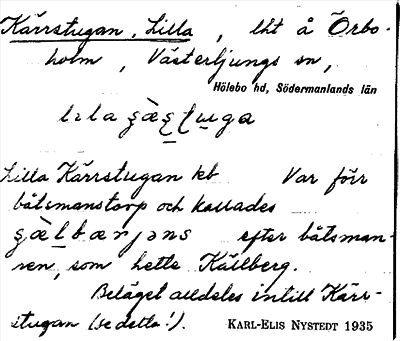 Kärrstugan, Lilla, lht å Örbo-
holm, Västerljungs sn,
Hölebo hd, Södermanlands län
Lilla Kärrstugan kb Var förr
båtsmanstorp och kallades
efter båtsman-
nen, som hette Källberg.
Beläget alldeles intill Kärr-
stugan (se detta!). KARL-ELIS NYSTEDT 1935